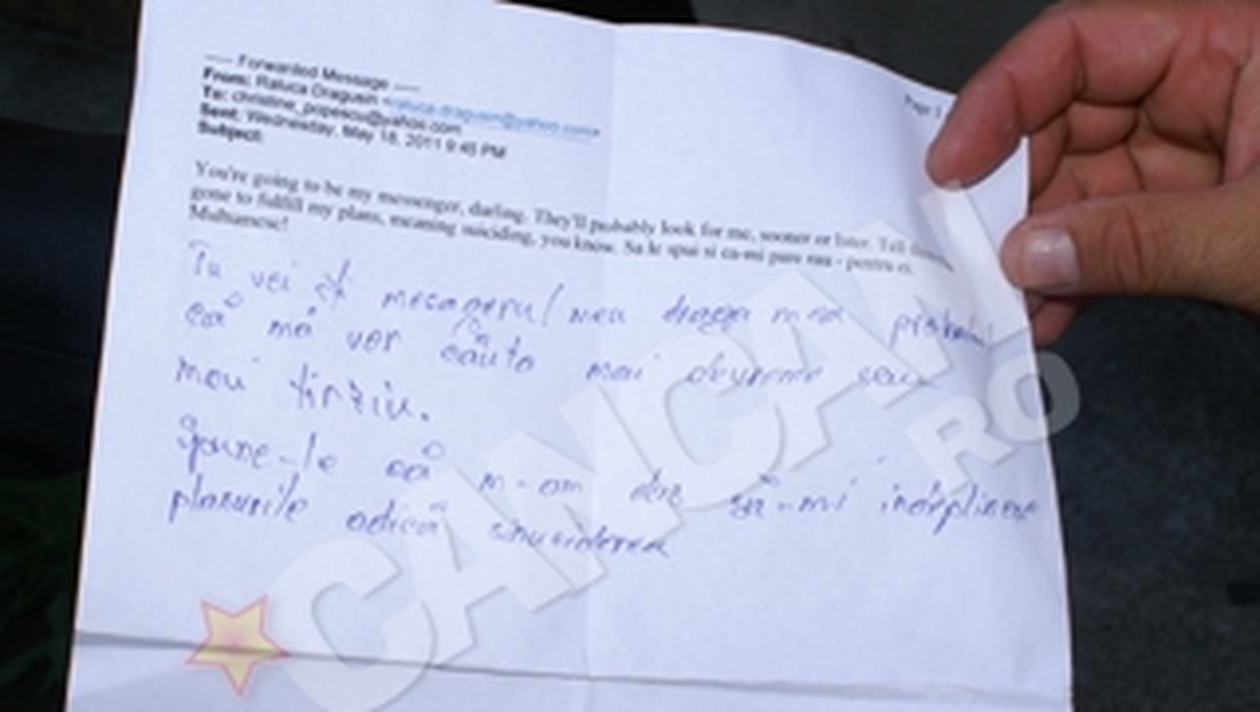 ----- Forwarded Message -----
From: Raluca Dragusin <raluca.dragusin@yahoo.com>
To: christine_popescu@yahoo.com
Sent: Wednesday, May 18, 2011 9:45 PM
Subject:
Page 1
You're going to be my messenger, darling. They'll probably look for me, sooner or later. Tell
gone to fulfill my plans, meaning suiciding, you know. Sa le spui si ca-mi pare rau - pentru ei.
Multumesc!
Tu vei fi mesagerul meu draga mea probabil
că mă vor căuta mai devreme sau
mai tirziu.
Spune-le că m-am dus să-mi indeplinesc
planurile adică sinuciderea
CANCAN
RO